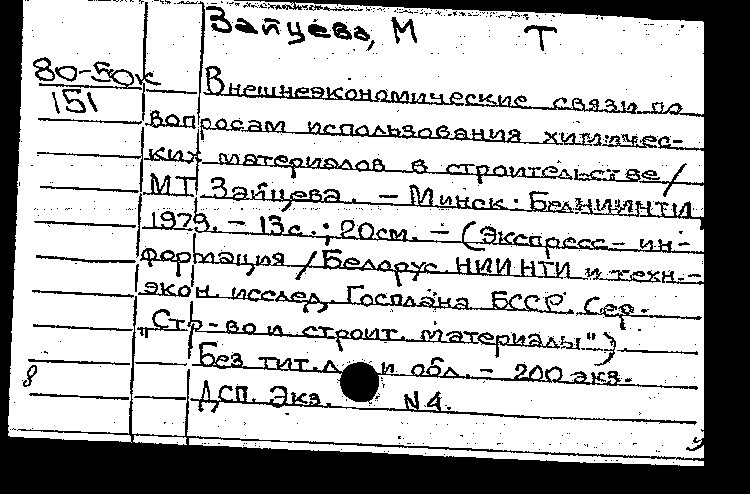 Зайцева, М Т
80-50к
151
Внешнеэкономические связи по
вопросам использования химичес-
ких материалов в строительстве/
М.Т. Зайцева. – Минск: БелНИИНТИ,
1979. – 13с.; 20см. – (Экспресс-ин-
формация / Белорус. НИИНТИ и техн.-
экон. исслед. Госплана БССР. Сер.
"Стр-во и строит. материалы").
Без тит.л. и обл. – 200 экз.
ДСП. Экз. N4.
8